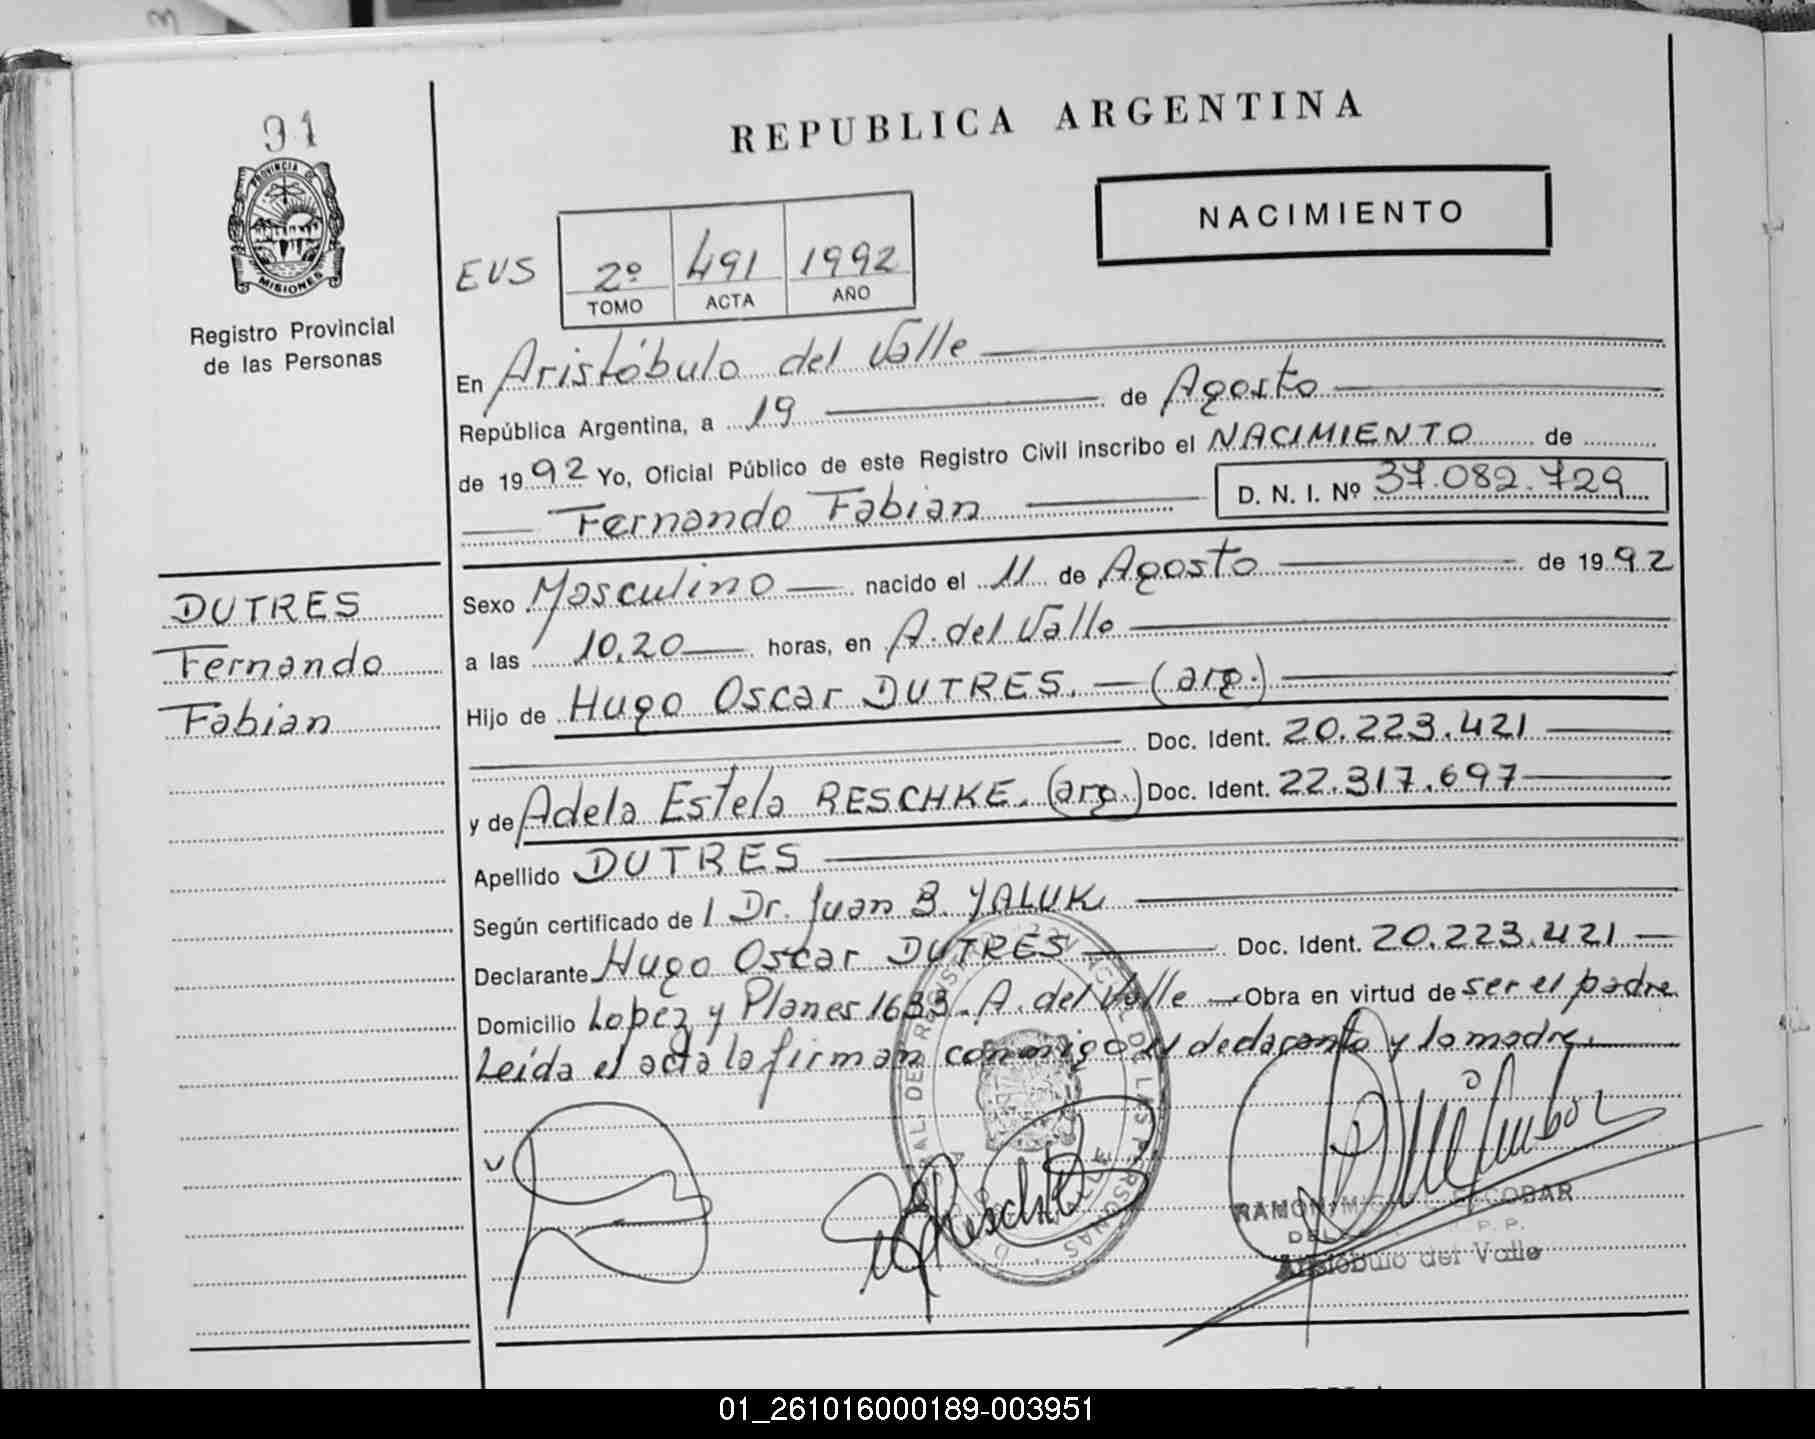 91
REPUBLICA ARGENTINA
PROVINCIA DE MISIONES
Registro Provincial
de las Personas
NACIMIENTO
EUS 2º 491 1992
TOMO ACTA AÑO
En Aristóbulo del Valle
República Argentina, a 19 de Agosto
de 1992 Yo, Oficial Público de este Registro Civil inscribo el NACIMIENTO de
Fernando Fabian D. N. I. Nº 37.082.729
DUTRES
Fernando
Fabian
Sexo Masculino nacido el 11 de Agosto de 1992
a las 10,20 horas, en A. del Valle
Hijo de Hugo Oscar DUTRES. — (arg.)
Doc. Ident. 20.223.421
y de Adela Estela RESCHKE. (arg.) Doc. Ident. 22.317.697
Apellido DUTRES
Según certificado de l Dr. Juan B. YALUK
Declarante Hugo Oscar DUTRES Doc. Ident. 20.223.421
Domicilio Lopez y Planes 1633. A. del Valle — Obra en virtud de ser el padre
Leída el acta la firman conmigo el declarante y la madre.
RAMON MIGUEL ESCOBAR
Aristobulo del Valle
01_261016000189-003951